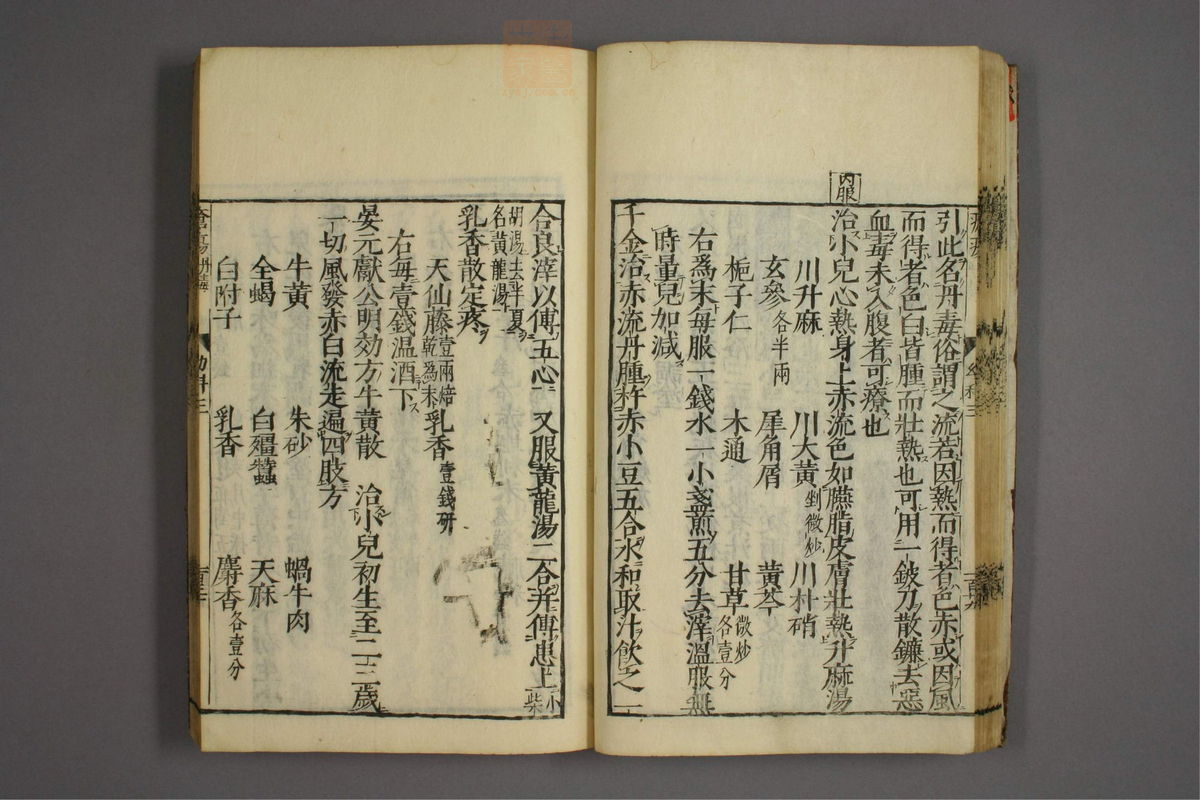 內服
引此名丹毒俗謂之流若因熱而得者色赤或因風
而得者色白皆腫而壯熱也可用一鈹刀散鐮去惡
血毒未入腹者可療也
治小兒心熱身上赤流色如臙脂皮膚壯熱升麻湯
川升麻 川大黃 剉微炒 川朴硝
玄參 各半兩 犀角屑 黃芩
梔子仁 木通 甘草 微炒各壹分
右爲末每服一錢水一小盞煎五分去滓溫服無
時量兒加減
千金治赤流丹腫杵赤小豆五合水和取汁飲之一
合良滓以傅五心 又服黃龍湯二合并傅患上 小柴
胡湯去半夏名黃龍湯
乳香散定疼
天仙藤 壹兩焙乾爲末 乳香 壹錢研
右每壹錢温酒下
晏元獻公明効方牛黃散 治小兒初生至二三歲
一切風發赤白流走遍四肢方
牛黃 朱砂 蝸牛肉
全蝎 白殭蠶 天麻
白附子 乳香 麝香 各壹分